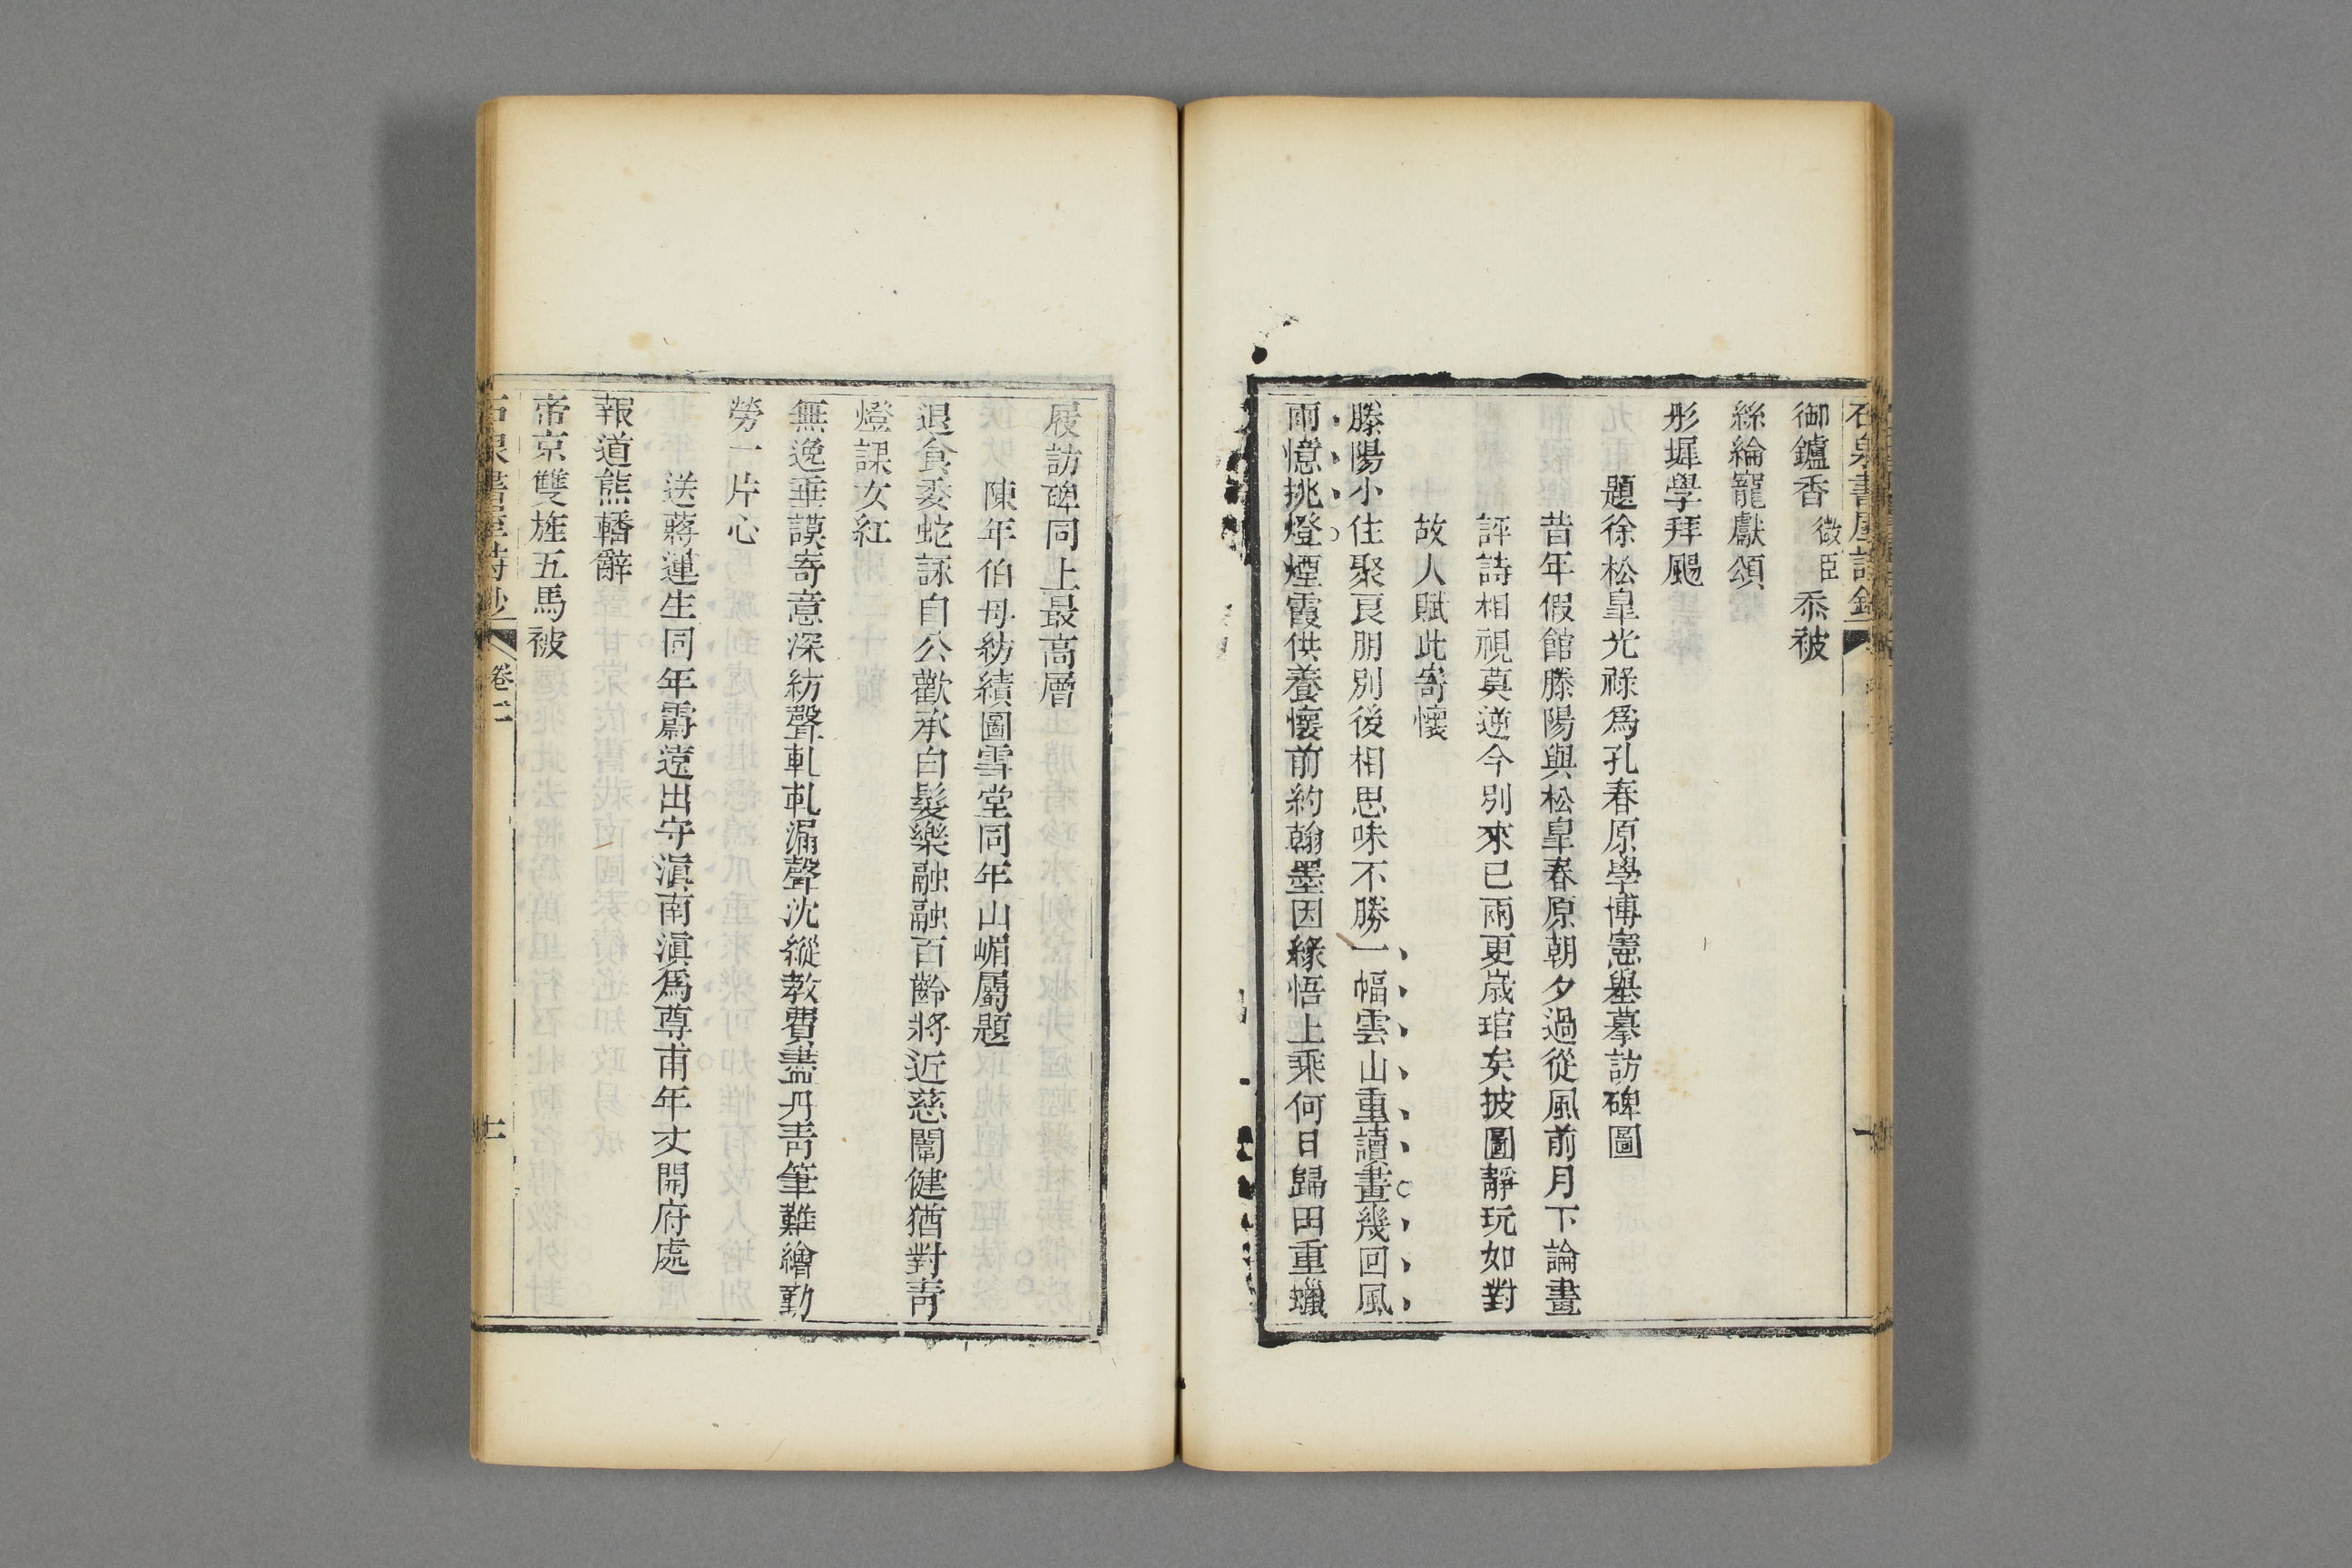 石泉書屋詩鈔
御鑪香微臣忝被
絲綸寵獻頌
彤墀學拜颺
題徐松皐光祿爲孔春原學博憲𦦙摹訪碑圖
昔年假館滕陽與松皐春原朝夕過從風前月下論畫
評詩相視莫逆今別來已兩更歲琯矣披圖靜玩如對
故人賦此寄懷
滕陽小住聚良朋別後相思味不勝一幅雲山重讀畫幾回風
雨憶挑燈煙霞供養懷前約翰墨因緣悟上乘何日歸田重蠟
屐訪碑同上最高層
陳年伯母紡績圖雪堂同年山嵋屬題
退食委蛇詠自公歡承白髮樂融融百齡將近慈闈健猶對靑
燈課女紅
無逸垂謨寄意深紡聲軋軋漏聲沈縱敎費盡丹靑筆難繪勤
勞一片心
送蔣蓮生同年霨遠出守滇南滇爲尊甫年丈開府處
報道熊轓辭
帝京雙旌五馬被
石泉書屋詩鈔
卷二